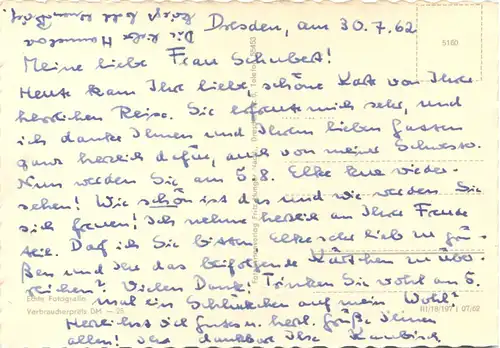 Dresden, am 30.7.62
Meine liebe Frau Schubert!
Heute kam Ihre liebe, schöne Karte von Ihrer
herrlichen Reise. Sie erfreute mich sehr, und
ich danke Ihnen und Ihrem lieben Gatten
ganz herzlich dafür, auch von meiner Schwester.
Nun werden Sie am 5.8. Elke wieder-
sehen! Wie schön ist das und wie werden Sie
sich freuen! Ich nehme herzlich an Ihrer Freude
teil. Darf ich Sie bitten, Elke sehr lieb zu grü-
ßen und ihr das beifolgende Kärtchen zu über-
reichen? Vielen Dank! Trinken Sie wohl am 5.
mal ein Schlückchen auf mein Wohl?
Herzlichst
allen! Ihre dankbare Ihre
Die liebe Hannelore
5160
Echte Fotografie
Verbraucherpreis DM —.25
III/18/197 | 07/62